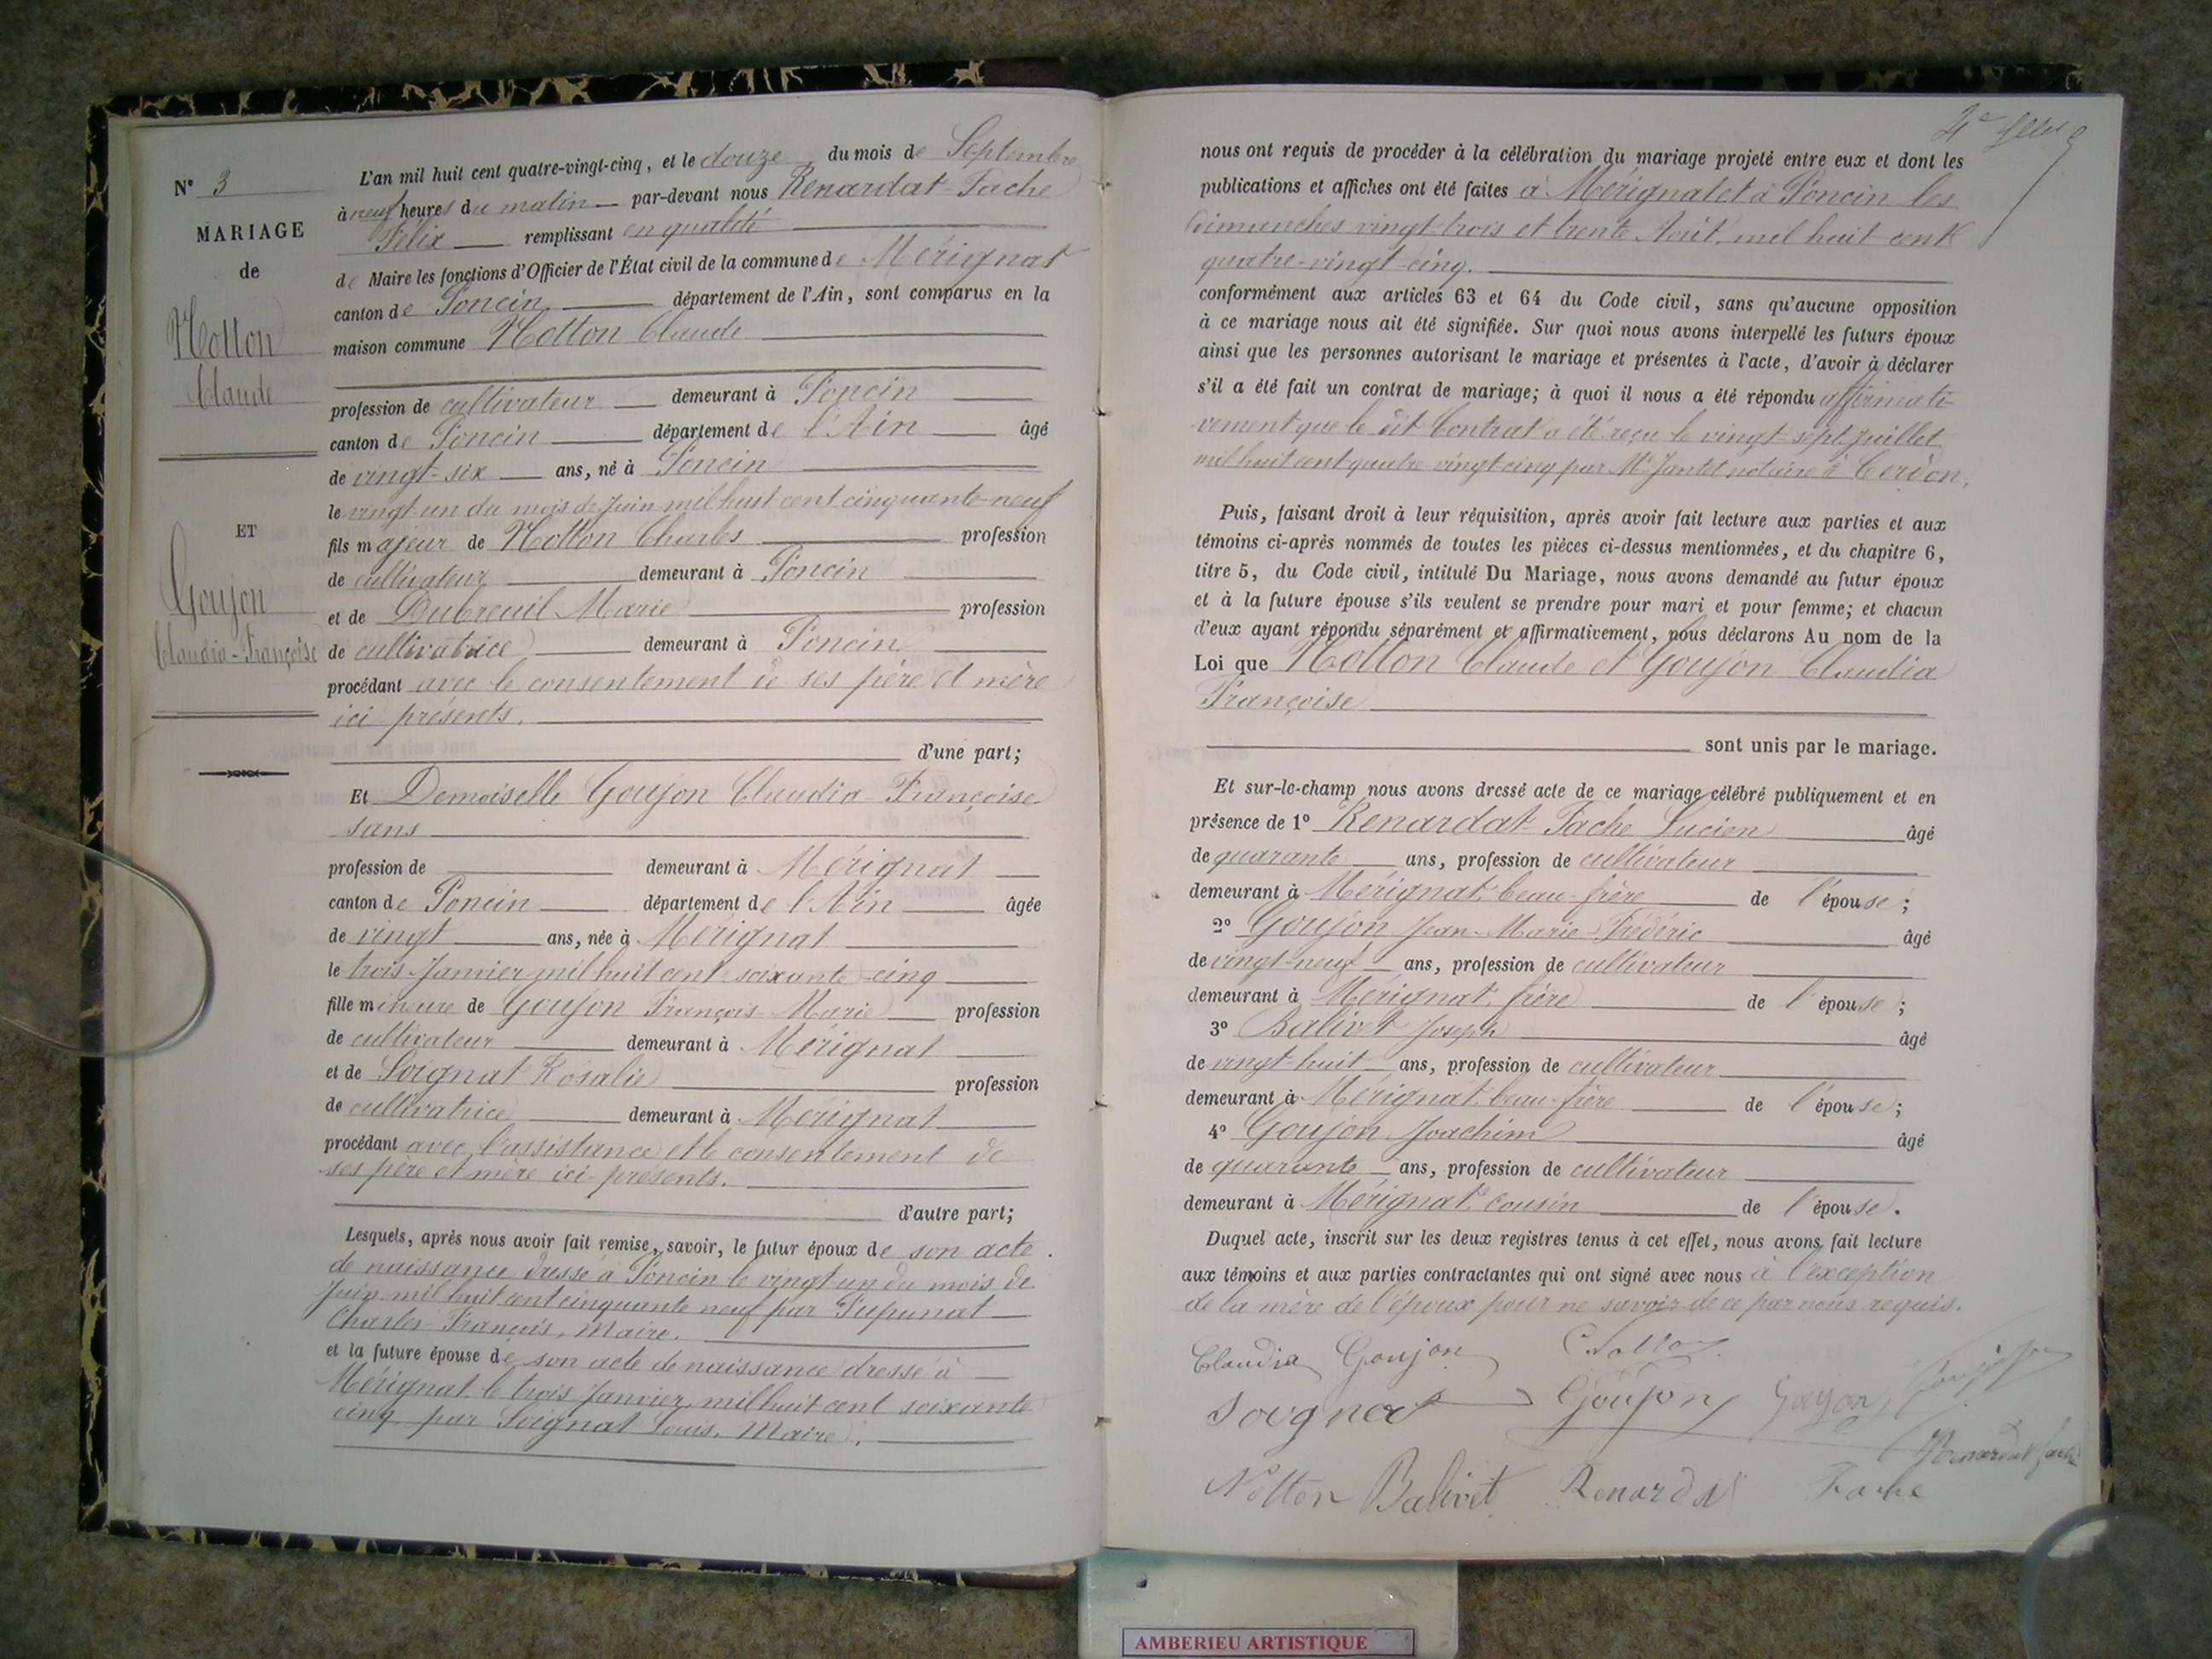 N° 3
MARIAGE
de
Notton
Claude
ET
Goujon
Claudia-Françoise
L'an mil huit cent quatre-vingt-cinq, et le douze du mois de Septembre
à neuf heures du matin par-devant nous Renardat-Fache
Félix remplissant en qualité
de Maire les fonctions d'Officier de l'État civil de la commune de Mérignat
canton de Poncin département de l'Ain, sont comparus en la
maison commune Notton Claude
profession de cultivateur demeurant à Poncin
canton de Poncin département de l'Ain âgé
de vingt-six ans, né à Poncin
le vingt-un du mois de Juin mil huit cent cinquante-neuf
fils majeur de Notton Charles profession
de cultivateur demeurant à Poncin
et de Dubreuil Marie profession
de cultivatrice demeurant à Poncin
procédant avec le consentement de ses père et mère
ici présents.
d'une part;
Et Demoiselle Goujon Claudia-Françoise
sans
profession de demeurant à Mérignat
canton de Poncin département de l'Ain âgée
de vingt ans, née à Mérignat
le trois Janvier mil huit cent soixante-cinq
fille mineure de Goujon François-Marie profession
de cultivateur demeurant à Mérignat
et de Soignat Rosalie profession
de cultivatrice demeurant à Mérignat
procédant avec l'assistance et le consentement de
ses père et mère ici présents.
d'autre part;
Lesquels, après nous avoir fait remise, savoir, le futur époux de son acte
de naissance dressé à Poncin le vingt un du mois de
Juin mil huit cent cinquante neuf par Pupunat
Charles-François, Maire.
et la future épouse de son acte de naissance dressé à
Mérignat le trois Janvier mil huit cent soixante
cinq par Soignat Louis, Maire.
nous ont requis de procéder à la célébration du mariage projeté entre eux et dont les
publications et affiches ont été faites à Mérignat et à Poncin les
dimanches vingt-trois et trente Août mil huit cent
quatre-vingt-cinq.
conformément aux articles 63 et 64 du Code civil, sans qu'aucune opposition
à ce mariage nous ait été signifiée. Sur quoi nous avons interpellé les futurs époux
ainsi que les personnes autorisant le mariage et présentes à l'acte, d'avoir à déclarer
s'il a été fait un contrat de mariage; à quoi il nous a été répondu affirmati-
vement que le dit Contrat a été reçu le vingt-sept Juillet
mil huit cent quatre-vingt-cinq par Me Jantet notaire à Cerdon.
Puis, faisant droit à leur réquisition, après avoir fait lecture aux parties et aux
témoins ci-après nommés de toutes les pièces ci-dessus mentionnées, et du chapitre 6,
titre 5, du Code civil, intitulé Du Mariage, nous avons demandé au futur époux
et à la future épouse s'ils veulent se prendre pour mari et pour femme; et chacun
d'eux ayant répondu séparément et affirmativement, nous déclarons Au nom de la
Loi que Notton Claude et Goujon Claudia
Françoise
sont unis par le mariage.
Et sur-le-champ nous avons dressé acte de ce mariage célébré publiquement et en
présence de 1° Renardat-Fache Lucien âgé
de quarante ans, profession de cultivateur
demeurant à Mérignat, beau-frère de l'épouse;
2° Goujon Jean-Marie-Frédéric âgé
de vingt-neuf ans, profession de cultivateur
demeurant à Mérignat, frère de l'épouse;
3° Balivet Joseph âgé
de vingt-huit ans, profession de cultivateur
demeurant à Mérignat, beau-frère de l'épouse;
4° Goujon Joachim âgé
de quarante ans, profession de cultivateur
demeurant à Mérignat, cousin de l'épouse.
Duquel acte, inscrit sur les deux registres tenus à cet effet, nous avons fait lecture
aux témoins et aux parties contractantes qui ont signé avec nous à l'exception
de la mère de l'époux pour ne savoir de ce par nous requis.
Claudia Goujon
Goujon Goujon
Renardat fache
Notton Balivet Renardat Fache
AMBERIEU ARTISTIQUE